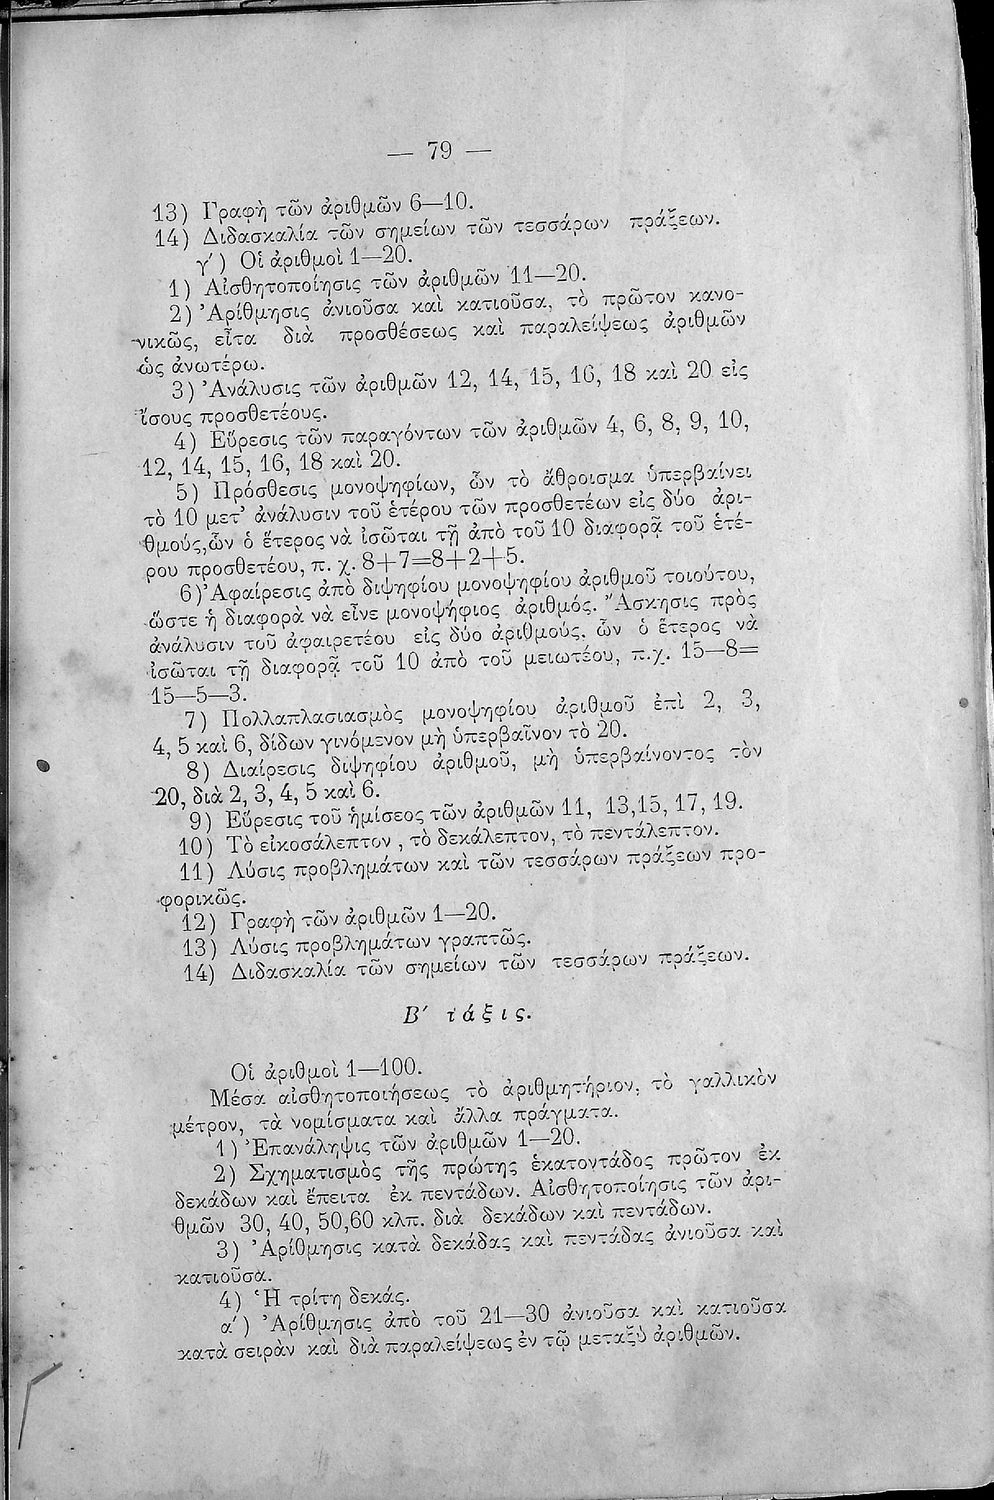 — 79 —
13) Γραφὴ τῶν ἀριθμῶν 6—10.
14) Διδασκαλία τῶν σημείων τῶν τεσσάρων πράξεων.
γ΄) Οἱ ἀριθμοὶ 1—20.
1) Αἰσθητοποίησις τῶν ἀριθμῶν 11—20.
2) Ἀρίθμησις ἀνιοῦσα καὶ κατιοῦσα, τὸ πρῶτον κανο-
νικῶς, εἶτα διὰ προσθέσεως καὶ παραλείψεως ἀριθμῶν
ὡς ἀνωτέρω.
3) Ἀνάλυσις τῶν ἀριθμῶν 12, 14, 15, 16, 18 καὶ 20 εἰς
ἴσους προσθετέους.
4) Εὕρεσις τῶν παραγόντων τῶν ἀριθμῶν 4, 6, 8, 9, 10,
12, 14, 15, 16, 18 καὶ 20.
5) Πρόσθεσις μονοψηφίων, ὧν τὸ ἄθροισμα ὑπερβαίνει
τὸ 10 μετ' ἀνάλυσιν τοῦ ἑτέρου τῶν προσθετέων εἰς δύο ἀρι-
θμούς, ὧν ὁ ἕτερος νὰ ἰσῶται τῇ ἀπὸ τοῦ 10 διαφορᾷ τοῦ ἑτέ-
ρου προσθετέου, π. χ. 8+7=8+2+5.
6) Ἀφαίρεσις ἀπὸ διψηφίου μονοψηφίου ἀριθμοῦ τοιούτου,
ὥστε ἡ διαφορὰ νὰ εἶνε μονοψήφιος ἀριθμός. Ἄσκησις πρὸς
ἀνάλυσιν τοῦ ἀφαιρετέου εἰς δύο ἀριθμούς, ὧν ὁ ἕτερος νὰ
ἰσῶται τῇ διαφορᾷ τοῦ 10 ἀπὸ τοῦ μειωτέου, π.χ. 15—8=
15—5—3.
7) Πολλαπλασιασμὸς μονοψηφίου ἀριθμοῦ ἐπὶ 2, 3,
4, 5 καὶ 6, δίδων γινόμενον μὴ ὑπερβαῖνον τὸ 20.
8) Διαίρεσις διψηφίου ἀριθμοῦ, μὴ ὑπερβαίνοντος τὸν
20, διὰ 2, 3, 4, 5 καὶ 6.
9) Εὕρεσις τοῦ ἡμίσεος τῶν ἀριθμῶν 11, 13,15, 17, 19.
10) Τὸ εἰκοσάλεπτον , τὸ δεκάλεπτον, τὸ πεντάλεπτον.
11) Λύσις προβλημάτων καὶ τῶν τεσσάρων πράξεων προ-
φορικῶς.
12) Γραφὴ τῶν ἀριθμῶν 1—20.
13) Λύσις προβλημάτων γραπτῶς.
14) Διδασκαλία τῶν σημείων τῶν τεσσάρων πράξεων.
Β΄ τάξις.
Οἱ ἀριθμοὶ 1—100.
Μέσα αἰσθητοποιήσεως τὸ ἀριθμητήριον, τὸ γαλλικὸν
μέτρον, τὰ νομίσματα καὶ ἄλλα πράγματα.
1) Ἐπανάληψις τῶν ἀριθμῶν 1—20.
2) Σχηματισμὸς τῆς πρώτης ἑκατοντάδος πρῶτον ἐκ
δεκάδων καὶ ἔπειτα ἐκ πεντάδων. Αἰσθητοποίησις τῶν ἀρι-
θμῶν 30, 40, 50,60 κλπ. διὰ δεκάδων καὶ πεντάδων.
3) Ἀρίθμησις κατὰ δεκάδας καὶ πεντάδας ἀνιοῦσα καὶ
κατιοῦσα.
4) Ἡ τρίτη δεκάς.
α΄) Ἀρίθμησις ἀπὸ τοῦ 21—30 ἀνιοῦσα καὶ κατιοῦσα
κατὰ σειρὰν καὶ διὰ παραλείψεως ἐν τῷ μεταξὺ ἀριθμῶν.